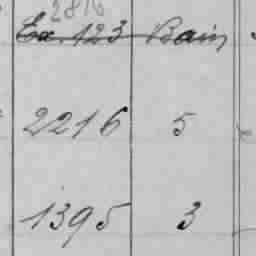 2816
Ex. 123 Bain
2216 5
1395 3